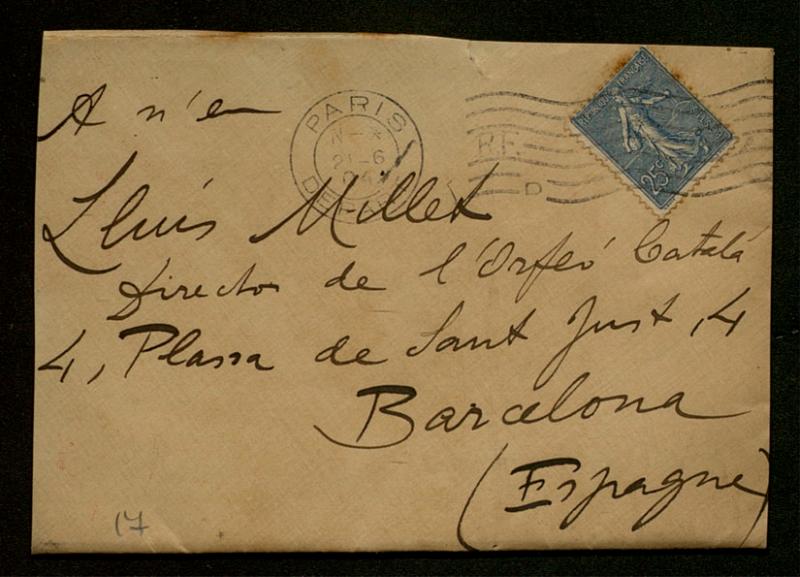 A n'en
PARIS
21-6
DEPART
R.F.
D
25c
Lluis Millet
Director de l'Orfeó Català
4, Plassa de Sant Just, 4
Barcelona
(Espagne)
17